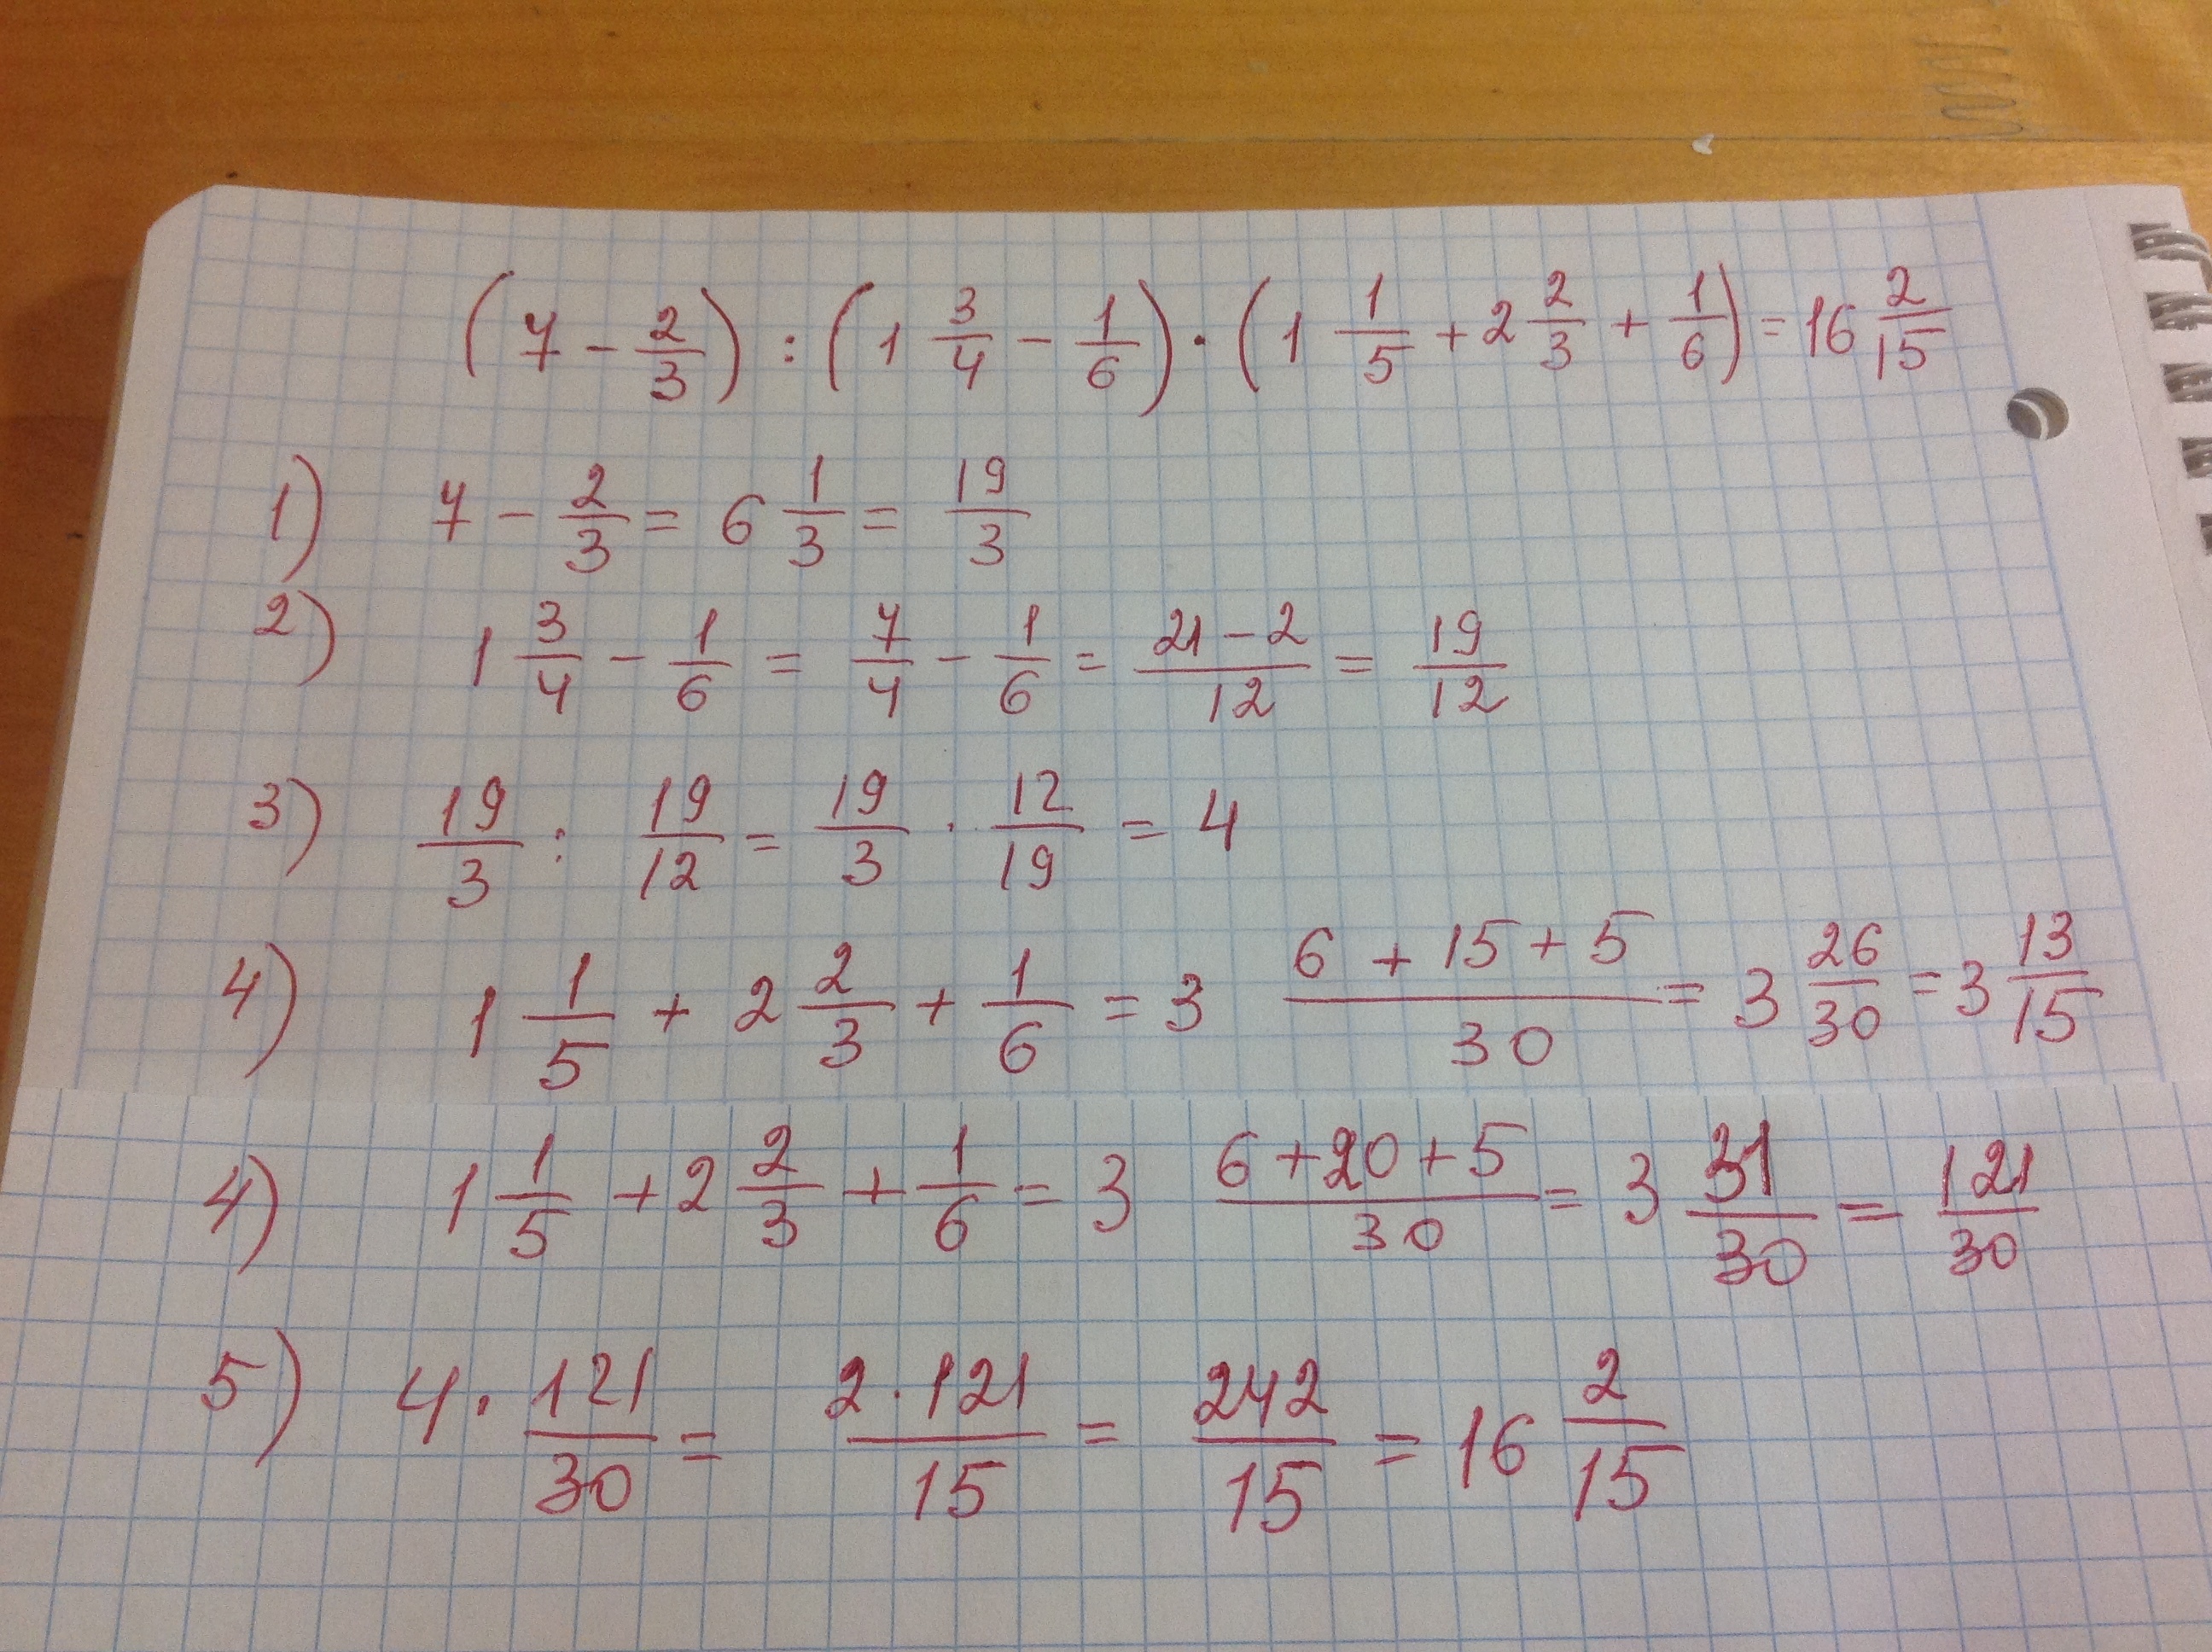 (7 - 2/3) : (1 3/4 - 1/6) · (1 1/5 + 2 2/3 + 1/6) = 16 2/15
1) 7 - 2/3 = 6 1/3 = 19/3
2) 1 3/4 - 1/6 = 7/4 - 1/6 = (21 - 2)/12 = 19/12
3) 19/3 : 19/12 = 19/3 · 12/19 = 4
4) 1 1/5 + 2 2/3 + 1/6 = 3 (6 + 15 + 5)/30 = 3 26/30 = 3 13/15
4) 1 1/5 + 2 2/3 + 1/6 = 3 (6 + 20 + 5)/30 = 3 31/30 = 121/30
5) 4 · 121/30 = (2 · 121)/15 = 242/15 = 16 2/15